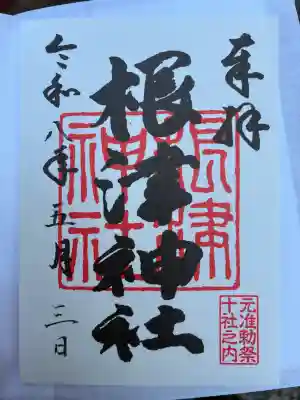 奉拝
根津神社
令和八年五月三日
根津
神社
元准勅祭
十社之内